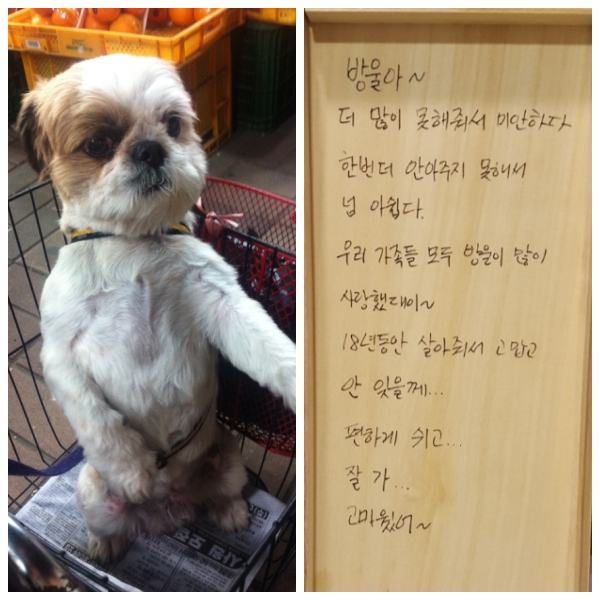 방울아~
더 많이 못해줘서 미안하다
한번더 안아주지 못해서
넘 아쉽다.
우리 가족들 모두 방울이 많이
사랑했대이~
18년동안 살아줘서 고맙고
안 잊을께...
편하게 쉬고...
잘 가...
고마웠어~